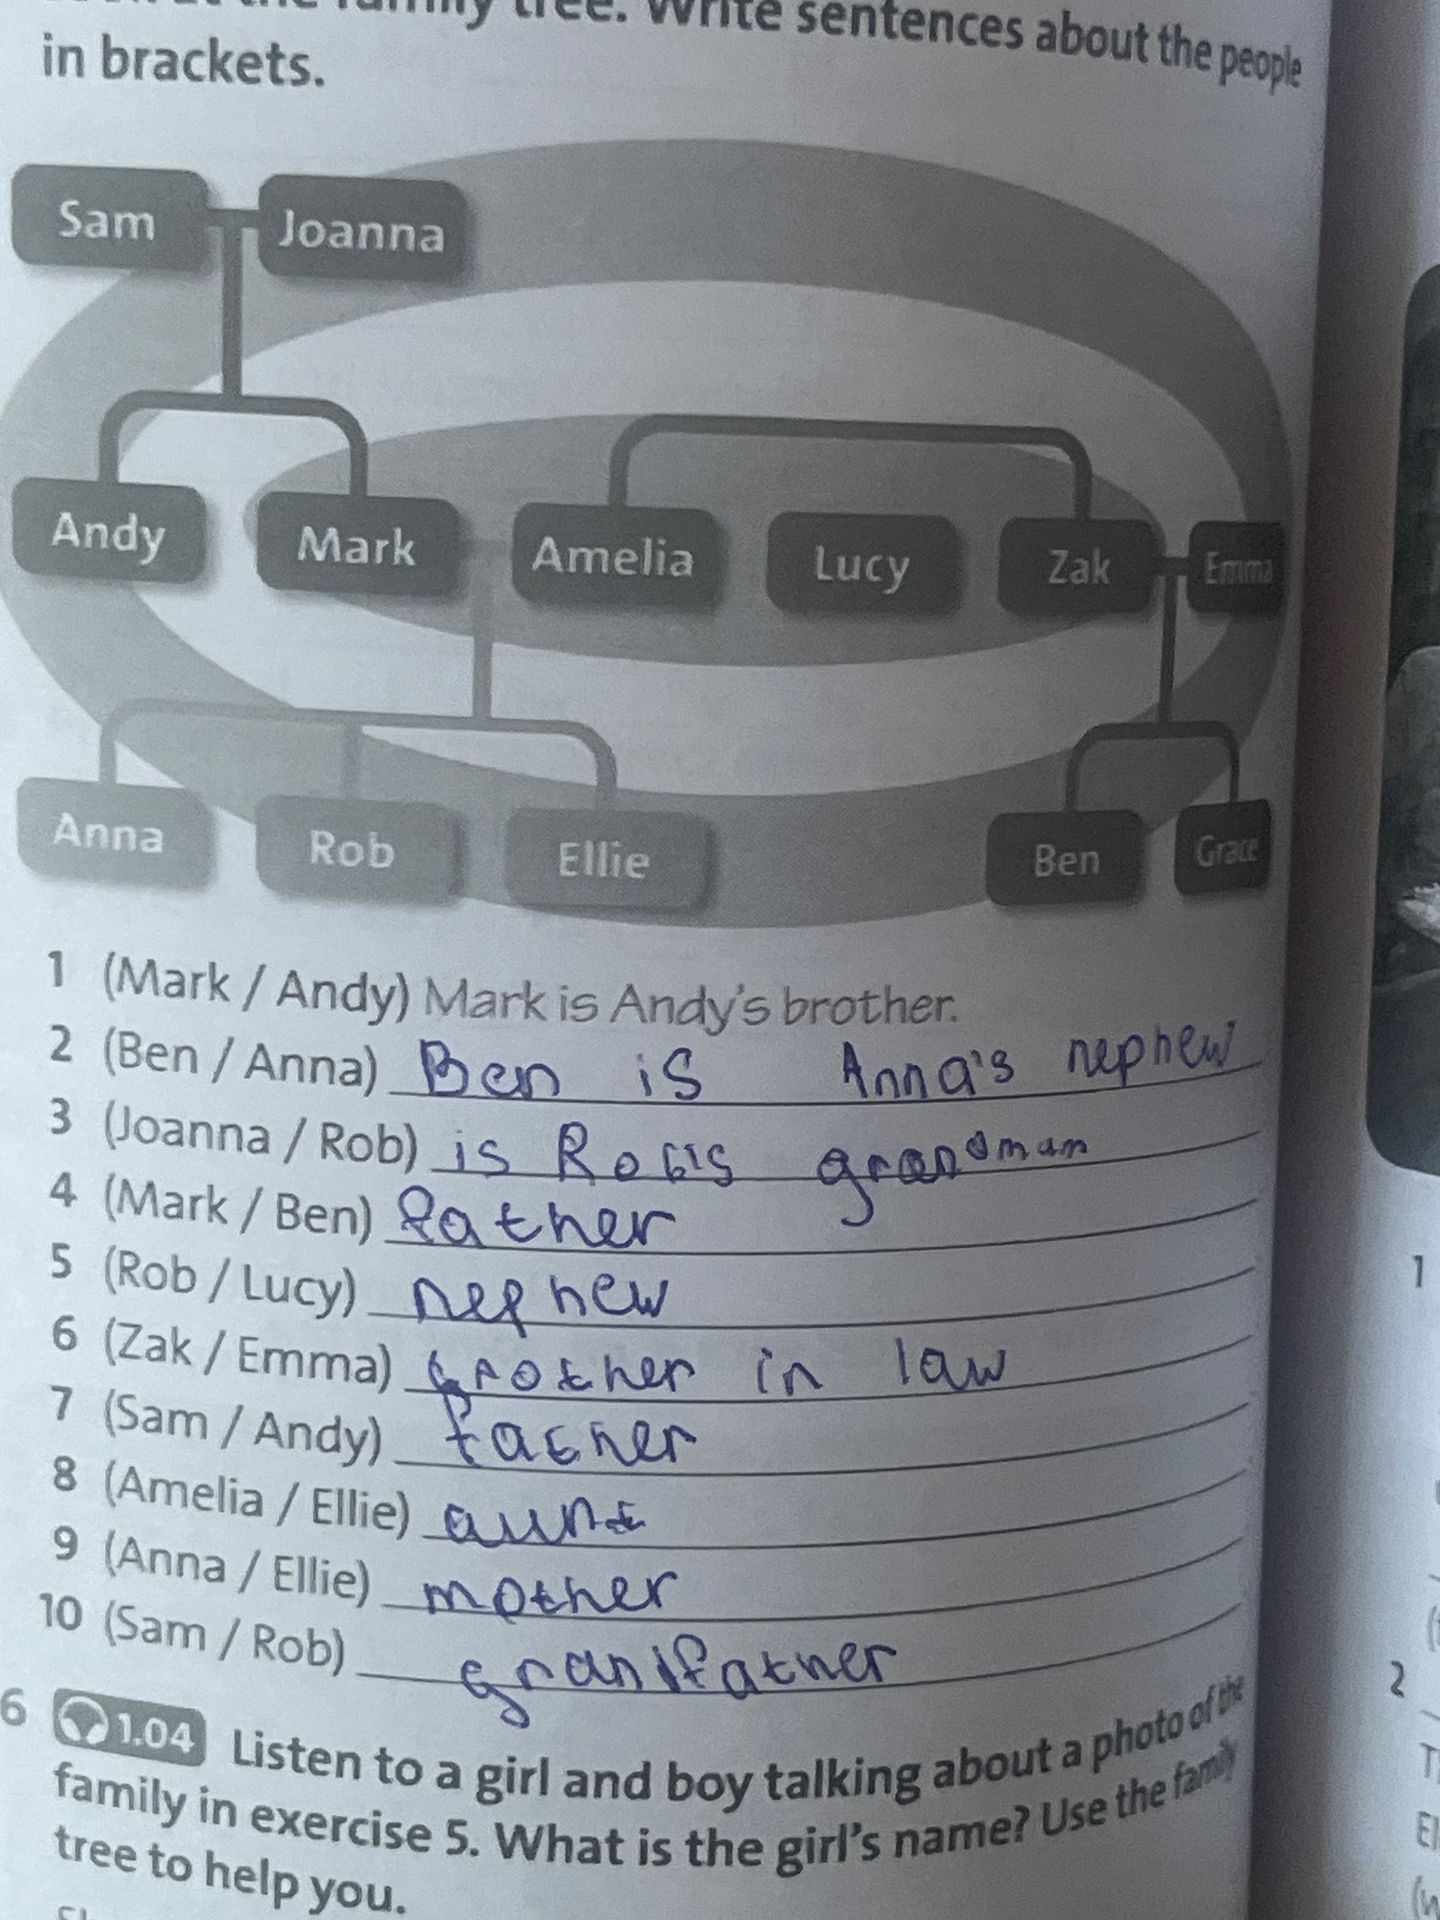 the family tree. Write sentences about the people
in brackets.
Sam
Joanna
Andy
Mark
Amelia
Lucy
Zak
Emma
Anna
Rob
Ellie
Ben
Grace
1 (Mark / Andy) Mark is Andy's brother.
2 (Ben / Anna) Ben is Anna's nephew
3 (Joanna / Rob) is Rob's grandmum
4 (Mark / Ben) father
5 (Rob / Lucy) nephew
6 (Zak / Emma) brother in law
7 (Sam / Andy) father
8 (Amelia / Ellie) aunt
9 (Anna / Ellie) mother
10 (Sam / Rob) grandfather
6 1.04 Listen to a girl and boy talking about a photo of the
family in exercise 5. What is the girl's name? Use the family
tree to help you.
1
2